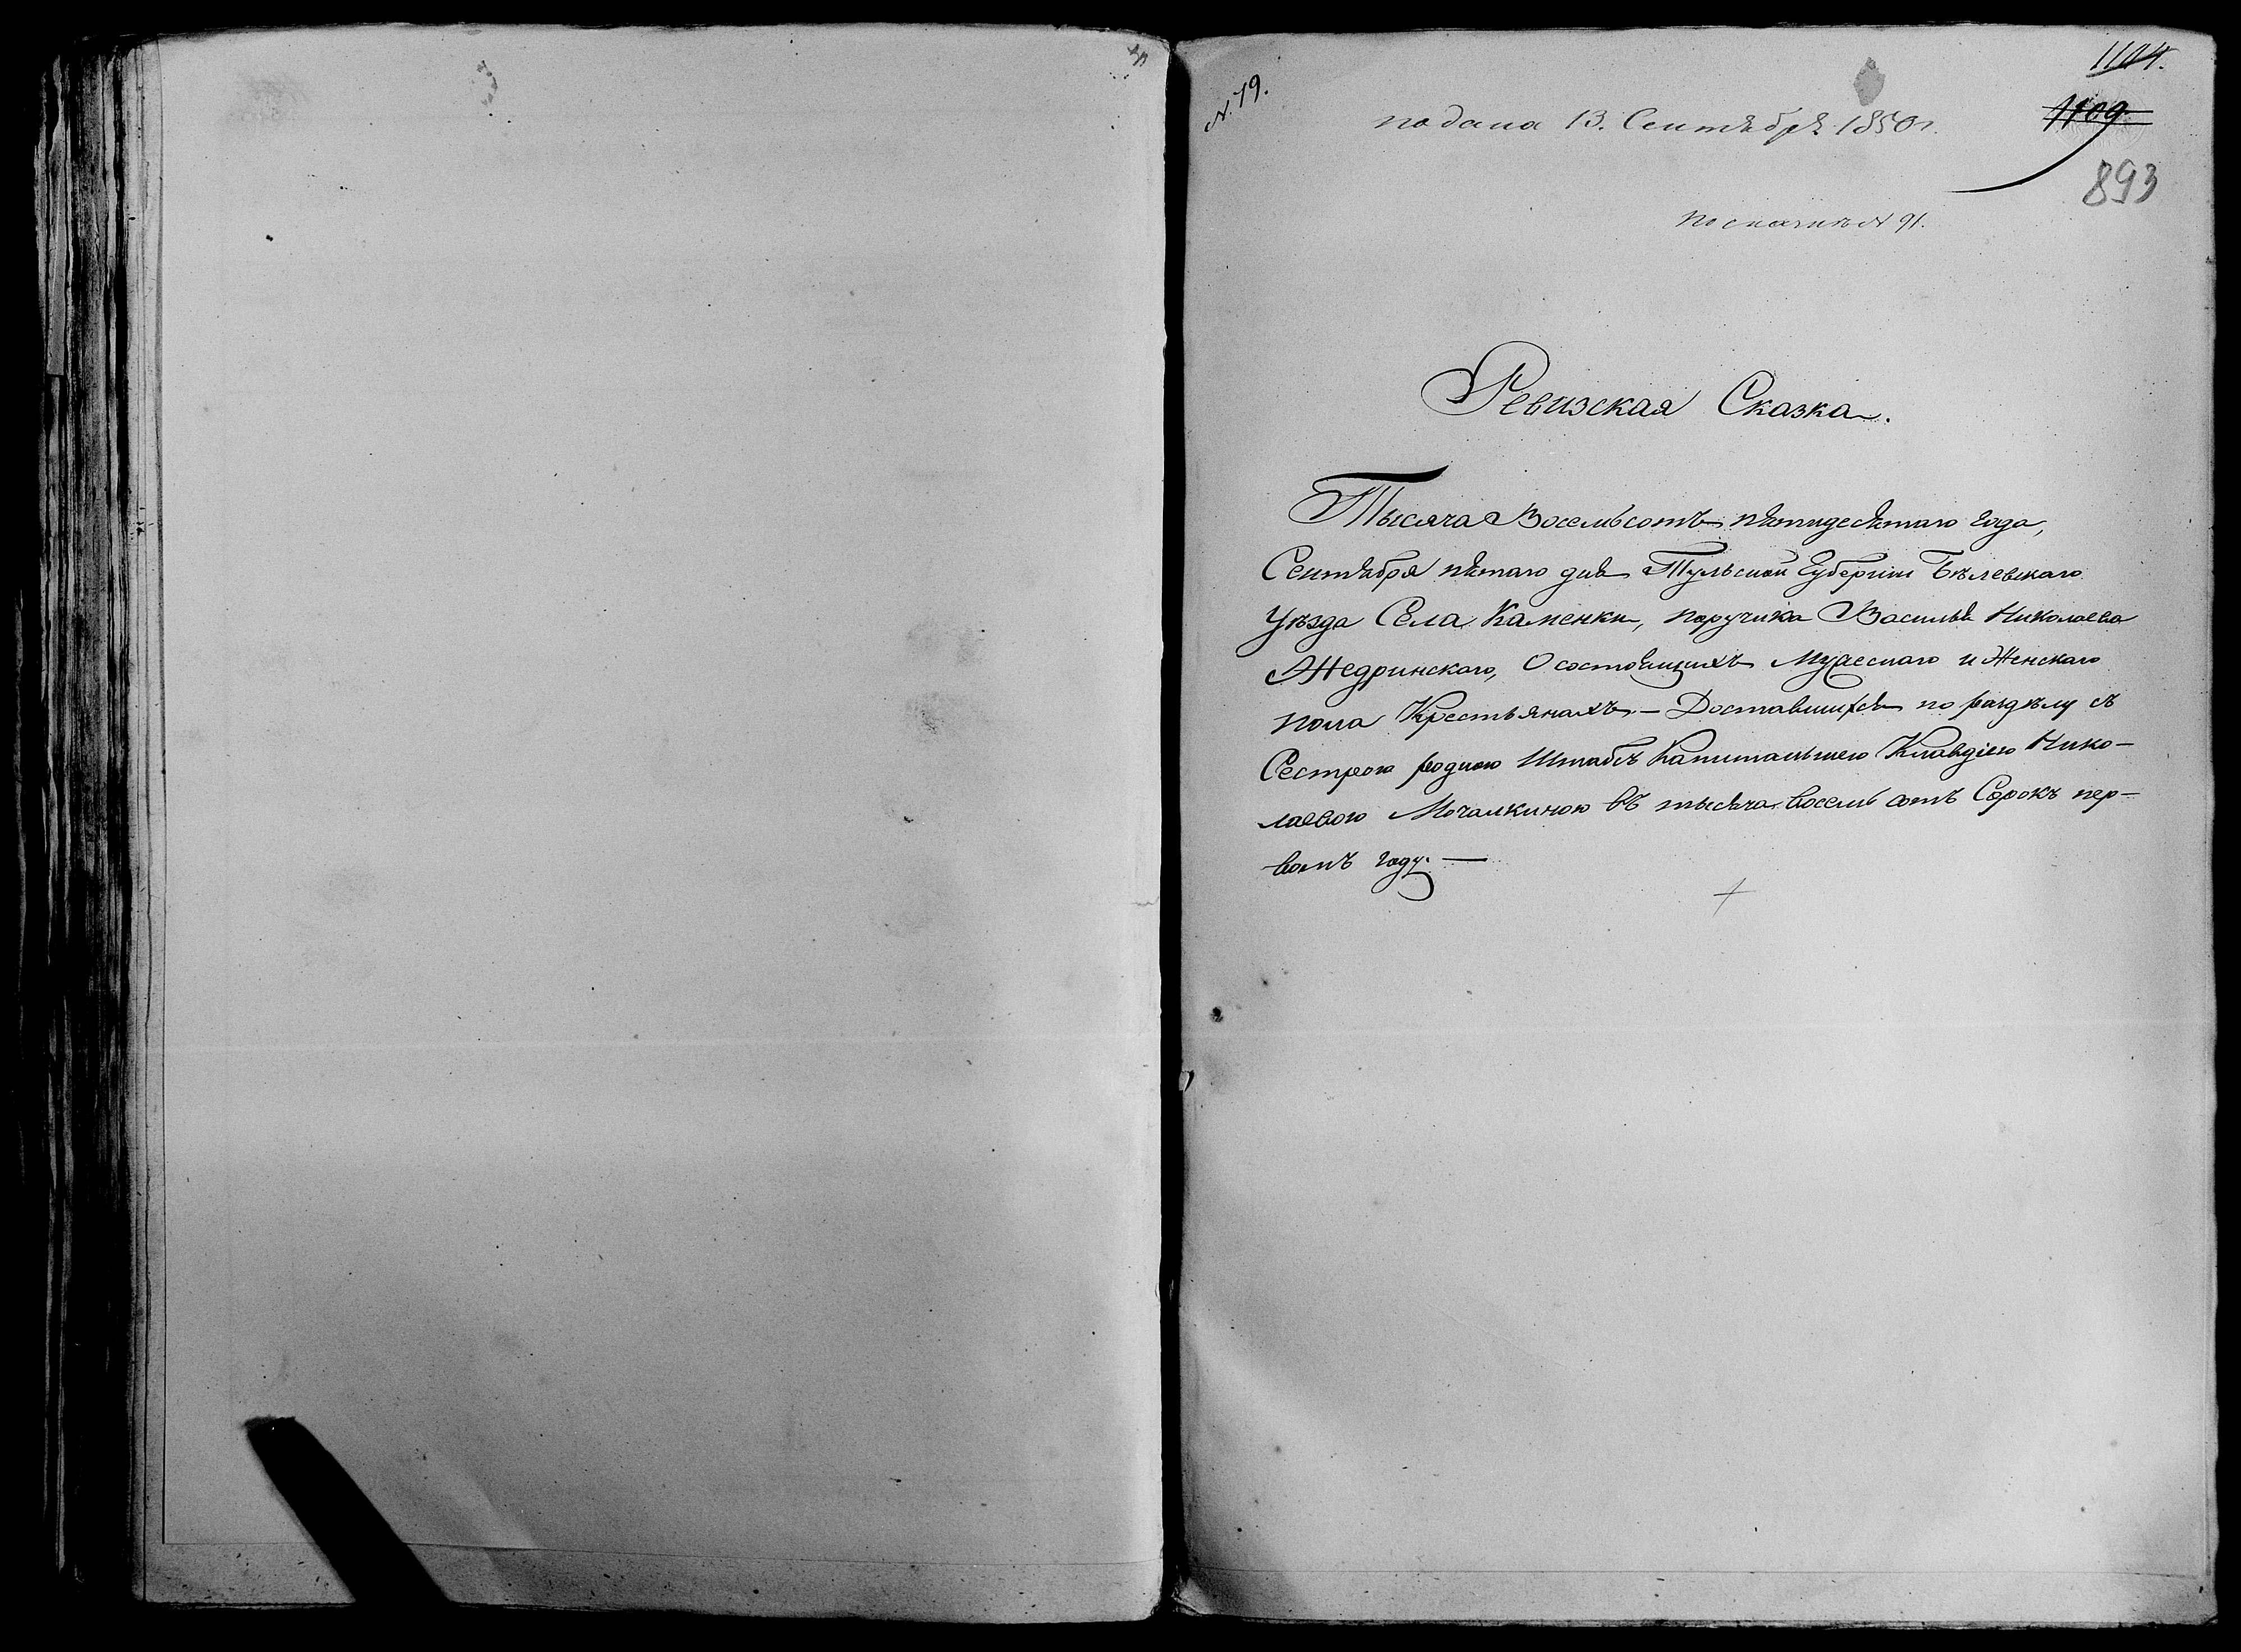 N. 19.
1104.
подана 13. Сентября 1850 г.
1109
893
по скаскѣ N 91.
Ревизская Сказка.
Тысяча Восемьсотъ пятидесятаго года,
Сентября пятаго дня Тульской Губерніи Бѣлевскаго
Уѣзда Села Каменки, поручика Василья Николаева
Жедринскаго, О состоящихъ Мужескаго и Женскаго
пола Крестьянахъ. — Доставшихся по раздѣлу съ
Сестрою родною Штабсъ Капитаншею Клавдіею Нико-
лаевою Мочалкиною въ тысяча восемь сотъ Сорокъ пер-
вомъ году. —